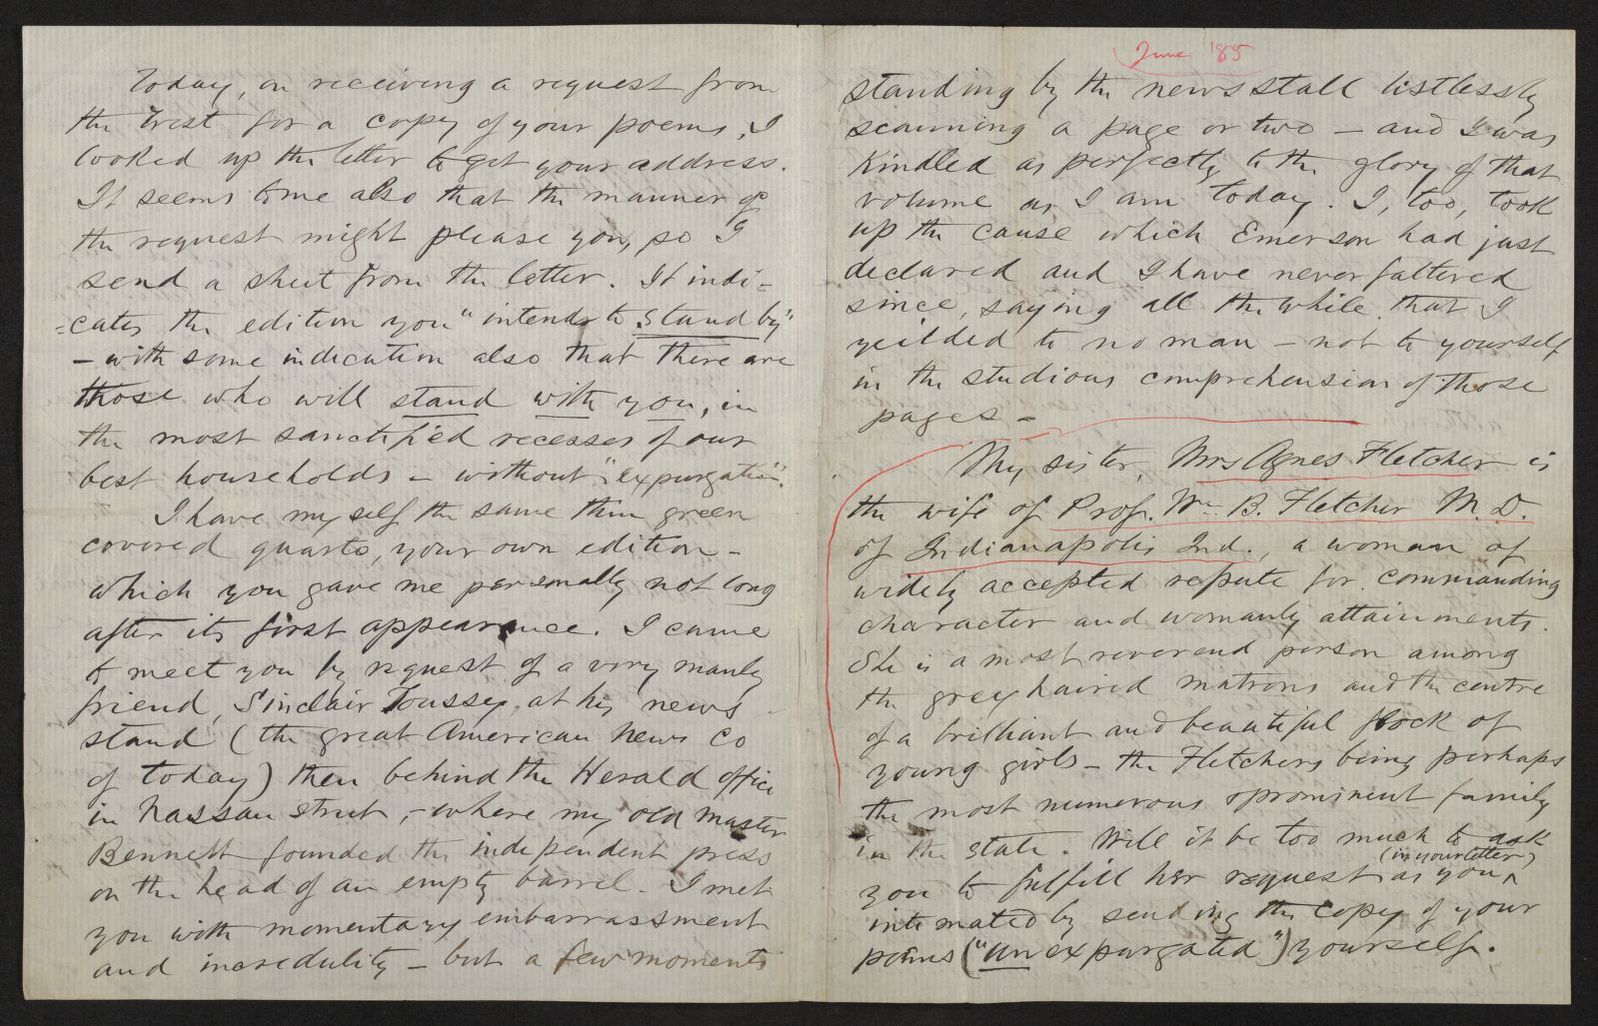 Today, on receiving a request from
the West for a copy of your poems, I
looked up the letter to get your address.
It seems to me also that the manner of
the request might please you, so I
send a sheet from the letter. It indi-
=cates the edition you "intend to stand by"
- with some indication also that there are
those who will stand with you, in
the most sanctified recesses of our
best households - without "expurgation".
I have myself the same thin green
covered quarto, your own edition -
which you gave me personally not long
after its first appearance. I came
to meet you by request of a very manly
friend, Sinclair Toussey, at his news
stand (the great American News Co
of today) then behind the Herald office
in Nassau Street, - where my old master
Bennett founded the independent press
on the head of an empty barrel. I met
you with momentary embarrassment
and incredulity - but a few moments
June '85
standing by the news stall listlessly
scanning a page or two - and I was
kindled as perfectly to the glory of that
volume as I am today. I, too, took
up the cause which Emerson had just
declared and I have never faltered
since, saying all the while that I
yeilded to no man - not to yourself
in the studious comprehension of those
pages -
My sister, Mrs Agnes Fletcher is
the wife of Prof. Wm B. Fletcher M. D.
of Indianapolis Ind., a woman of
widely accepted repute for commanding
character and womanly attainments.
She is a most reverend person among
the grey haired matrons and the centre
of a brilliant and beautiful flock of
young girls - the Fletchers being perhaps
the most numerous & prominent family
in the state. Will it be too much to ask
you to fulfill her request as you (in your letter)
intimated by sending the copy of your
poems ("Unexpurgated") yourself.